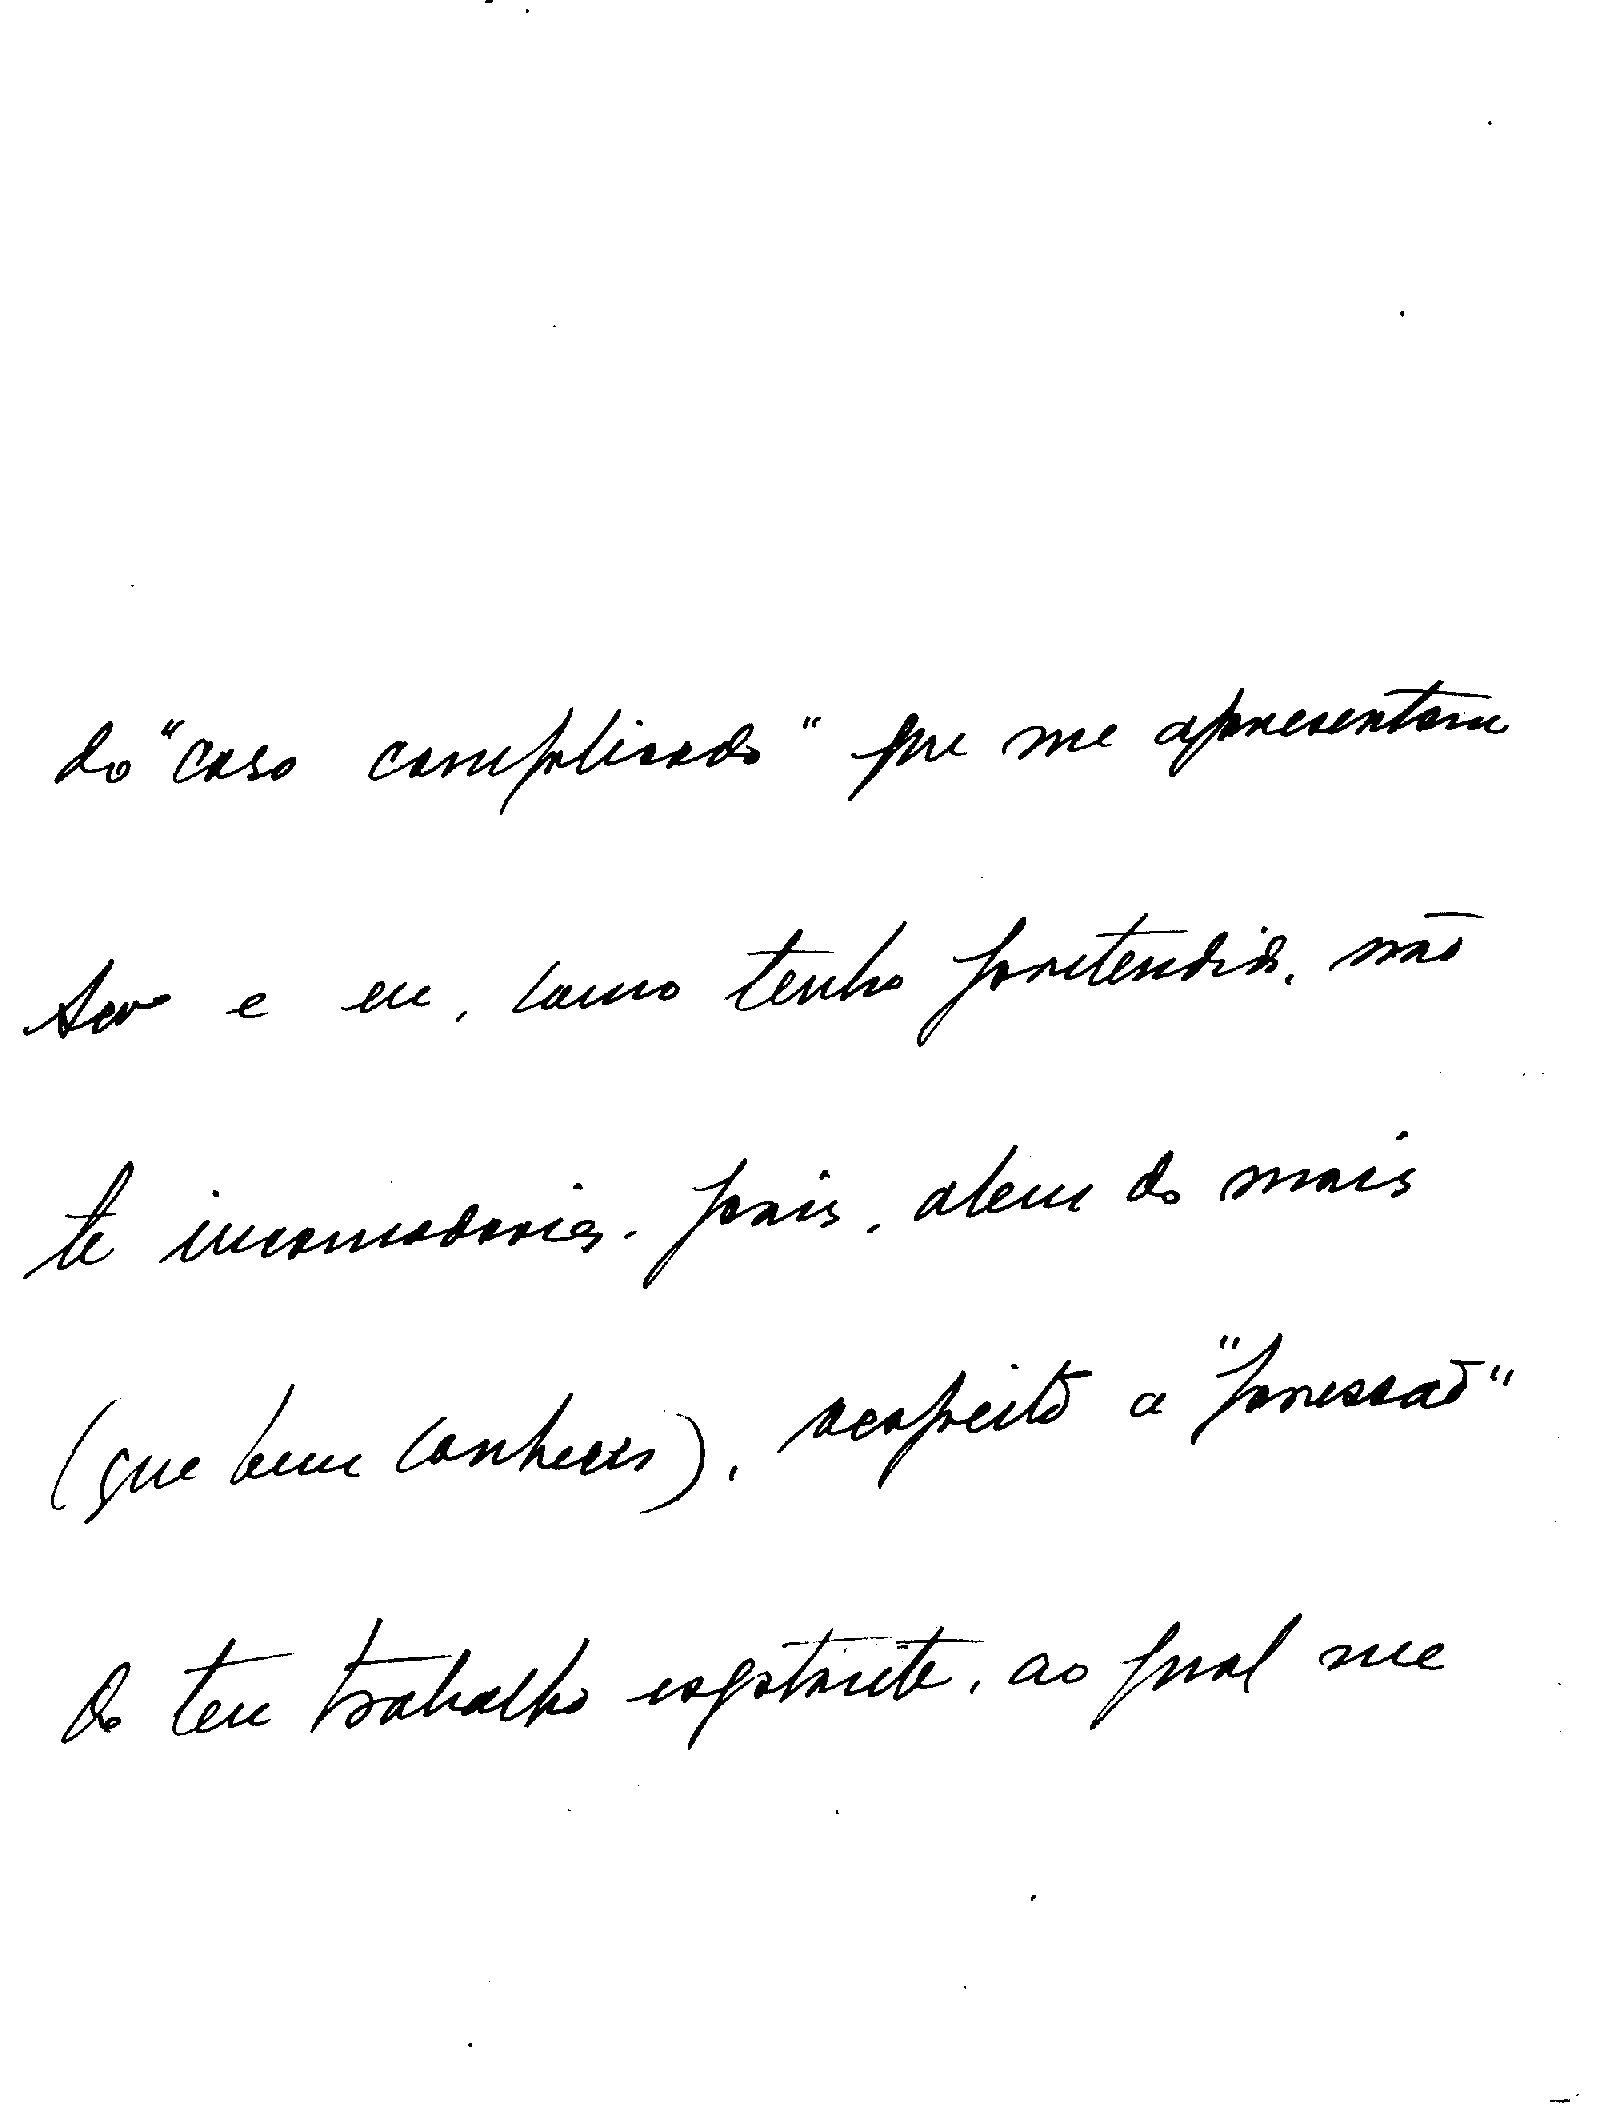 do "caso complicado" que me apresentam
ser e eu, como tenho pretendido, não
te incomodaria. Pois, alem do mais
(que bem conheces), respeito a "pressão"
do teu trabalho esgotante, ao qual me